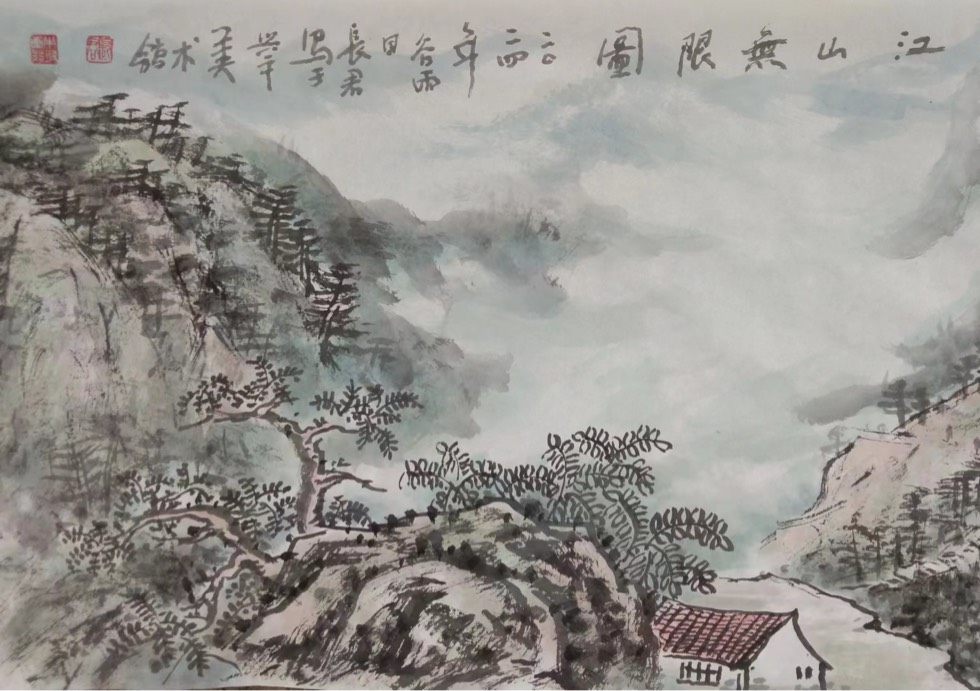 江山無限圖 二〇二四年谷雨日長君写于美术館